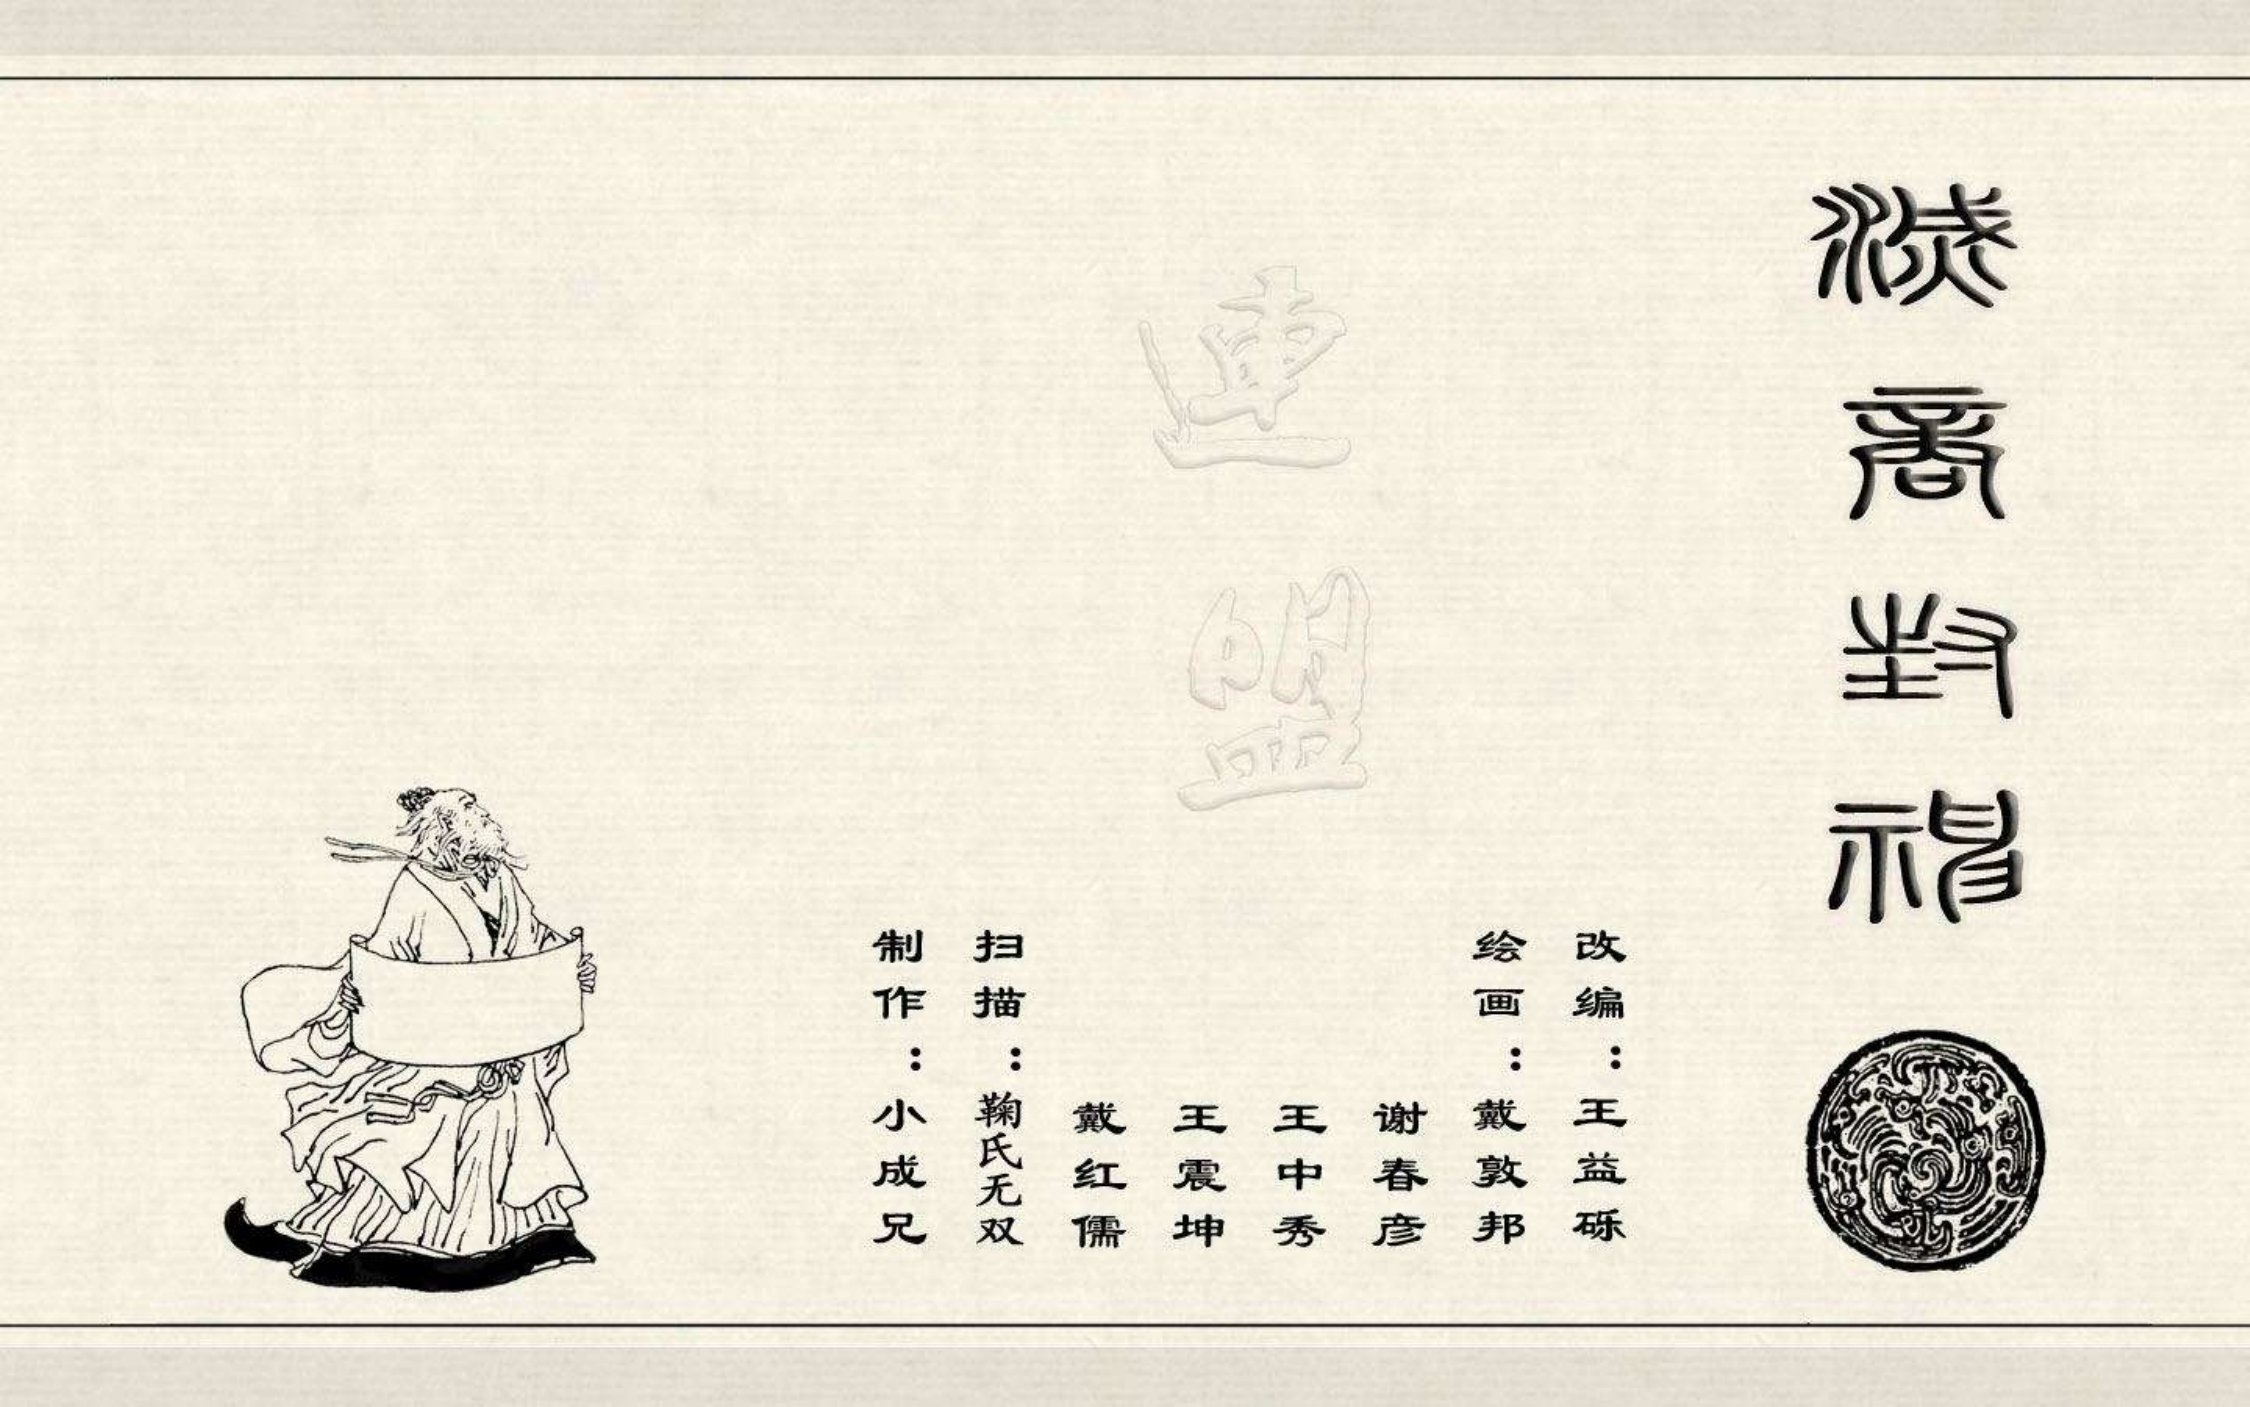 滅商封神
改编：王益砾
绘画：戴敦邦
谢春彦
王中秀
王震坤
戴红儒
扫描：鞠氏无双
制作：小成兄
連盟